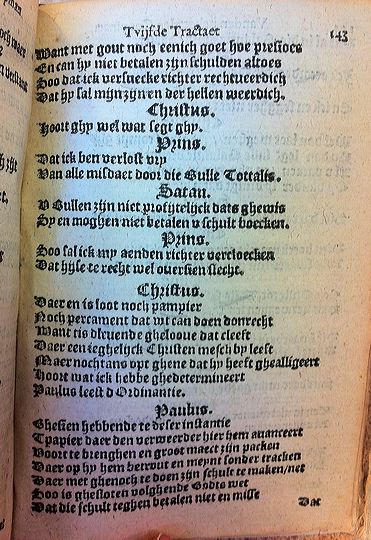 Tvijfde Tractaet
143
Want met gout noch eenich goet hoe presioes
En can hy niet betalen zijn schulden altoes
Soo dat ick versuecke richter rechtueerdich
Dat hy sal mijn zijn en der hellen weerdich.
Christus.
Hoort ghy wel wat segt ghy.
Prins.
Dat ick ben verlost vry
Van alle misdaet door die Bulle Tottalis.
Satan.
V Bullen zijn niet profijtelijck dats ghewis
Sy en moghen niet betalen v schult boecken.
Prins.
Soo sal ick my aenden richter vercloecken
Dat hyse te recht wel ouersien slecht.
Christus.
Daer en is loot noch pampier
Noch percament dat wt can doen donrecht
Want tis dleuende ghelooue dat cleeft
Daer een ieghelijck Christen mesch by leeft
Maer nochtans opt ghene dat hy heeft ghealligeert
Hoort wat ick hebbe ghedetermineert
Paulus leest d Ordinantie.
Paulus.
Ghesien hebbende te deser instantie
Tpapier daer den verweerder hier hem auanceert
Voort te brenghen en groot maect zijn packen
Daer op hy hem berrout en meynt sonder tracken
Daer met ghenoch te doen zijn schult te maken net
Soo is ghesloten volghende Godts wet
Dat die schult teghen betalen niet en misse
Dat